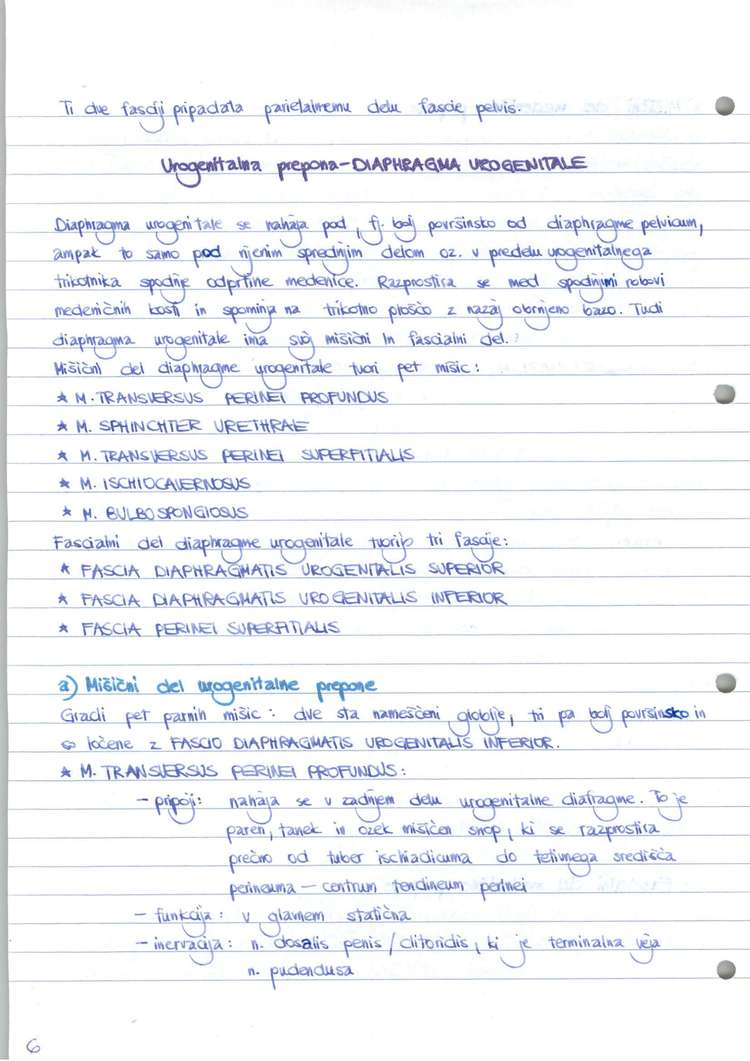 Ti dve fasciji pripadata parietalnemu delu fascie pelvis.
Urogenitalna prepona - DIAPHRAGMA UROGENITALE
Diaphragma urogenitale se nahaja pod, tj. bolj površinsko od diaphragme pelvicum,
ampak to samo pod njenim sprednjim delom oz. v predelu urogenitalnega
trikotnika spodnje odprtine medenice. Razprostira se med spodnjimi robovi
medeničnih kosti in spominja na trikotno ploščo z nazaj obrnjeno bazo. Tudi
diaphragma urogenitale ima svoj mišični in fascialni del.
Mišični del diaphragme urogenitale tvori pet mišic:
* M. TRANSVERSUS PERINEI PROFUNDUS
* M. SPHINCHTER URETHRAE
* M. TRANSVERSUS PERINEI SUPERFITIALIS
* M. ISCHIOCAVERNOSUS
* M. BULBOSPONGIOSUS
Fascialni del diaphragme urogenitale tvorijo tri fascije:
* FASCIA DIAPHRAGMATIS UROGENITALIS SUPERIOR
* FASCIA DIAPHRAGMATIS UROGENITALIS INFERIOR
* FASCIA PERINEI SUPERFITIALIS
a) Mišični del urogenitalne prepone
Gradi pet parnih mišic: dve sta nameščeni globlje, tri pa bolj površinsko in
so ločene z FASCIO DIAPHRAGMATIS UROGENITALIS INFERIOR.
* M. TRANSVERSUS PERINEI PROFUNDUS:
- pripoji: nahaja se v zadnjem delu urogenitalne diafragme. To je
paren, tanek in ozek mišičen snop, ki se razprostira
prečno od tuber ischiadicuma do tetivnega središča
perineuma - centrum tendineum perinei
- funkcija: v glavnem statična
- inervacija: n. dosalis penis / clitoridis, ki je terminalna veja
n. pudendusa
6